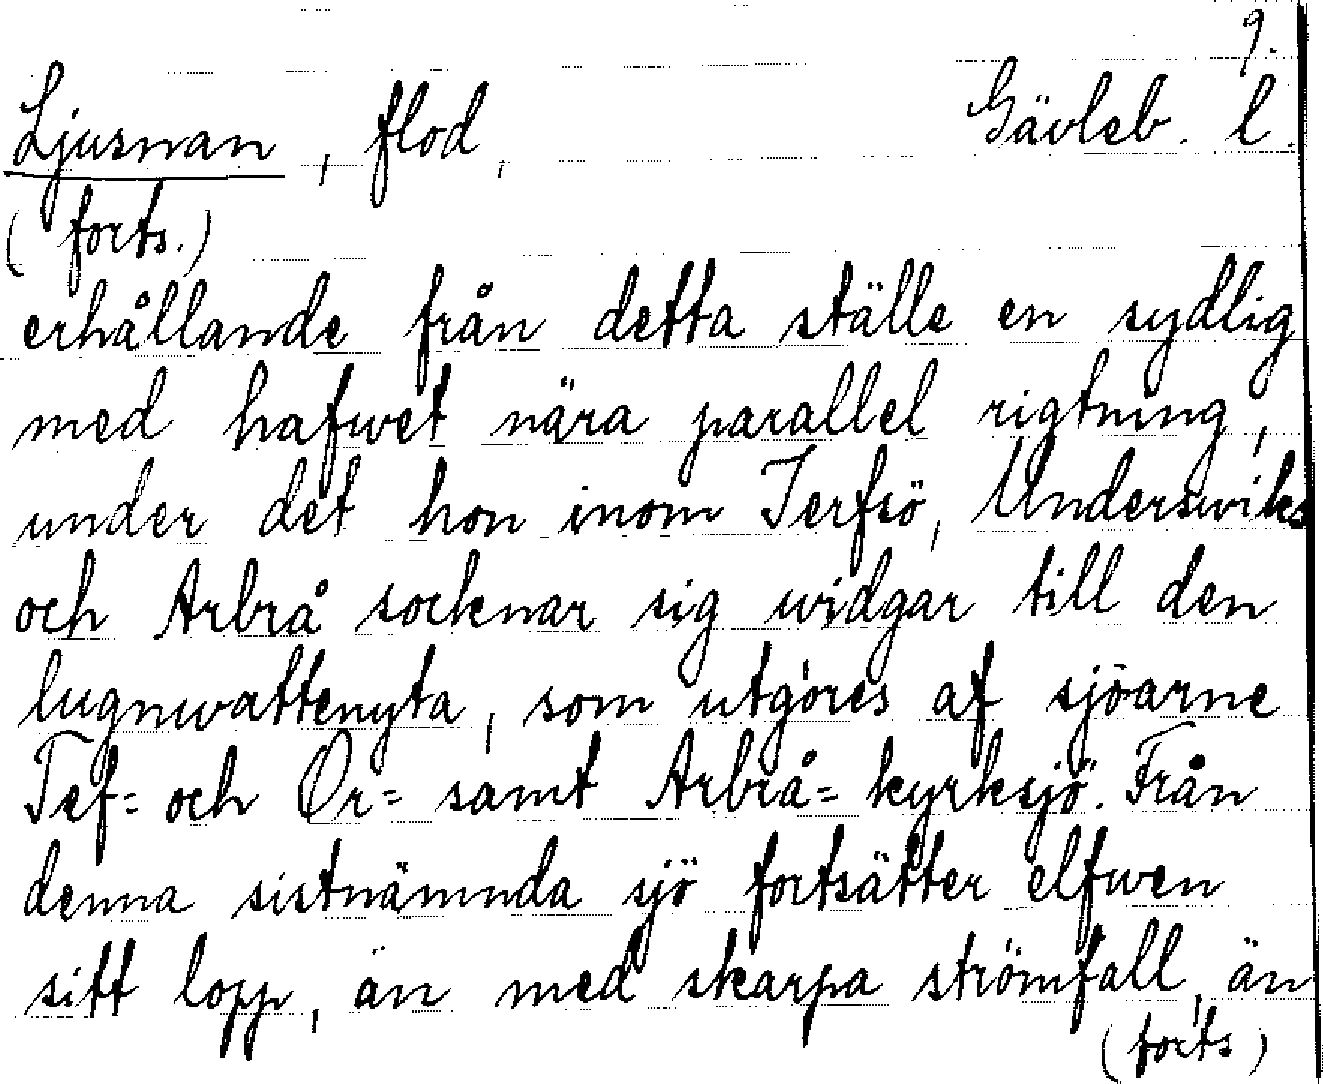 9.
Ljusnan, flod, Gävleb. l.
(forts.)
erhållande från detta ställe en sydlig
med hafwet nära parallel rigtning,
under det hon inom Jerfsö, Underswiks
och Arbrå socknar sig widgar till den
lugnwattenyta, som utgöres af sjöarne
Tef= och Or= samt Arbrå= kyrksjö. Från
denna sistnämnda sjö fortsätter elfwen
sitt lopp, än med skarpa strömfall, än
(forts)